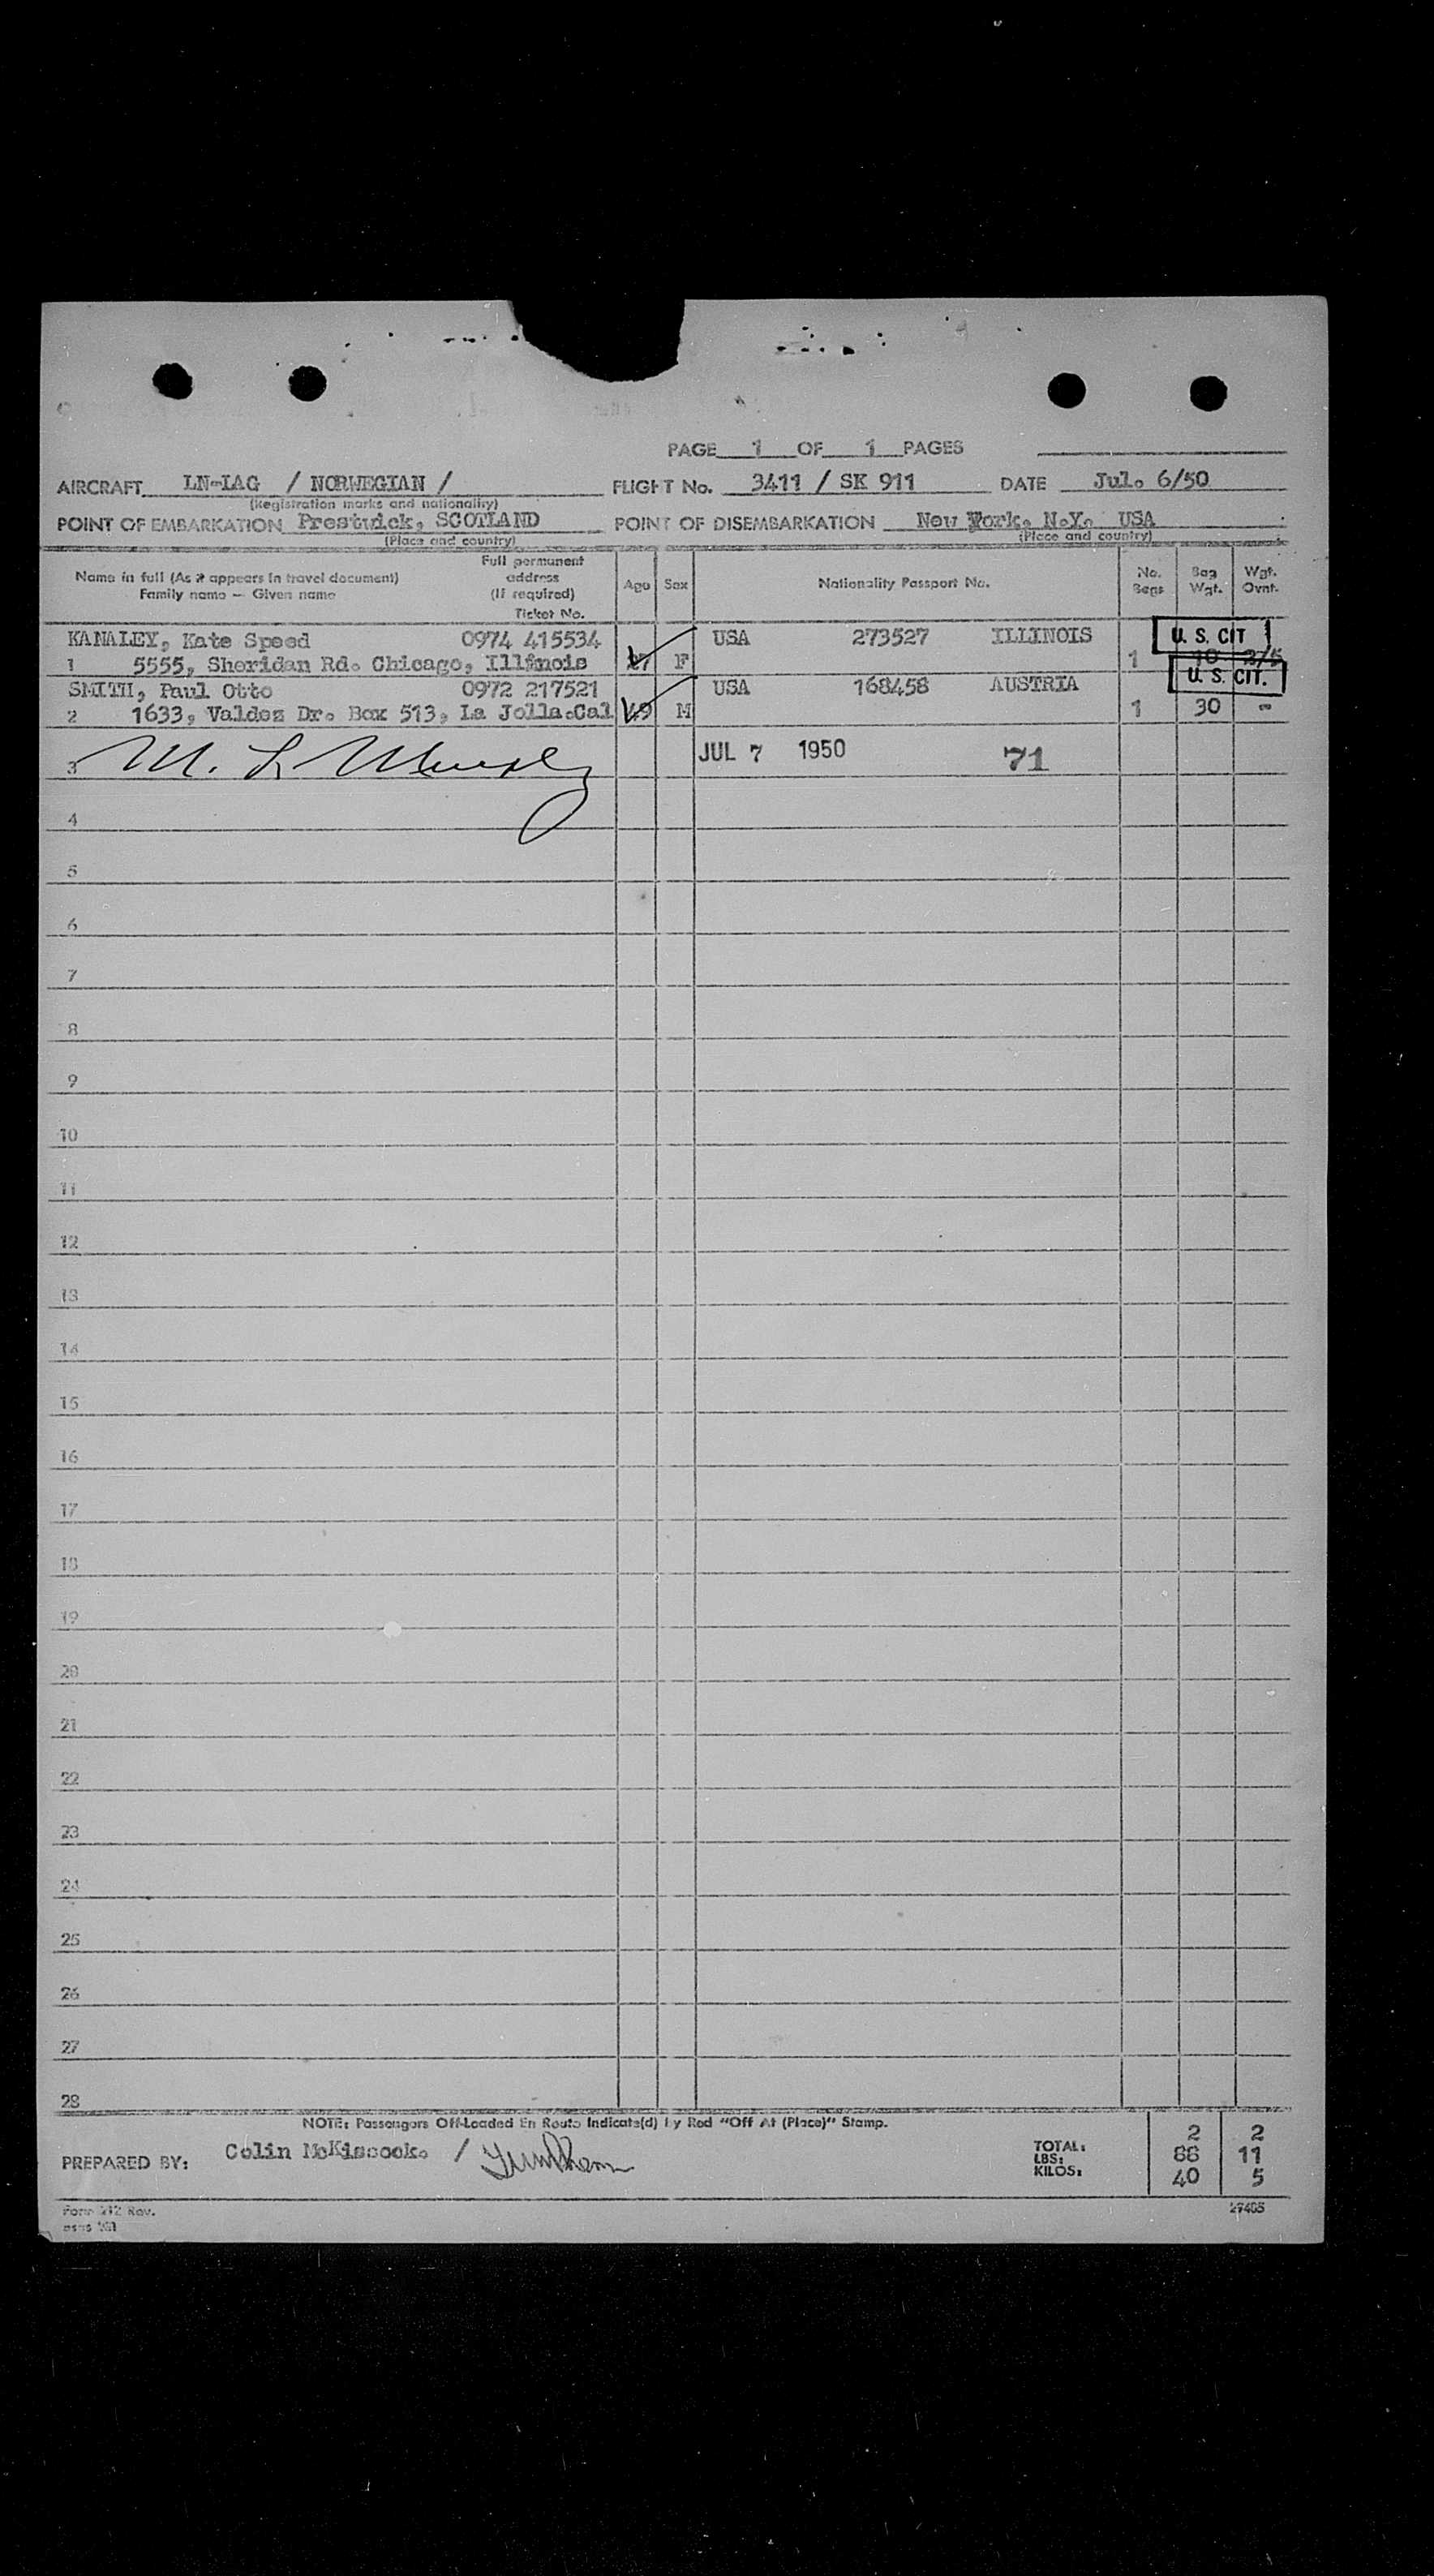 PAGE 1 OF 1 PAGES
AIRCRAFT LN-IAG / NORWEGIAN / FLIGHT No. 3411 / SK 911 DATE Jul. 6/50
(Registration marks and nationality)
POINT OF EMBARKATION Prestwick, SCOTLAND POINT OF DISEMBARKATION New York, N.Y. USA
(Place and country) (Place and country)
Name in full (As it appears in travel document) Family name — Given name
Full permanent address (If required) Ticket No.
Age Sex Nationality Passport No. No. Bags Bag Wgt. Wgt. Ovnt.
KANALEY, Kate Speed 0974 415534 USA 273527 ILLINOIS U. S. CIT
1 5555, Sheridan Rd. Chicago, Illinois F 1 10 2/5
SMITH, Paul Otto 0972 217521 USA 168458 AUSTRIA U. S. CIT.
2 1633, Valdez Dr. Box 513, La Jolla.Cal 49 M 1 30 -
3 JUL 7 1950 71
4
5
6
7
8
9
10
11
12
13
14
15
16
17
18
19
20
21
22
23
24
25
26
27
28
NOTE: Passengers Off-Loaded En Route Indicate(d) by Red "Off At (Place)" Stamp.
PREPARED BY: Colin McKissock. /
TOTAL: 2 2
LBS: 88 11
KILOS: 40 5
Form 212 Rev.
29405